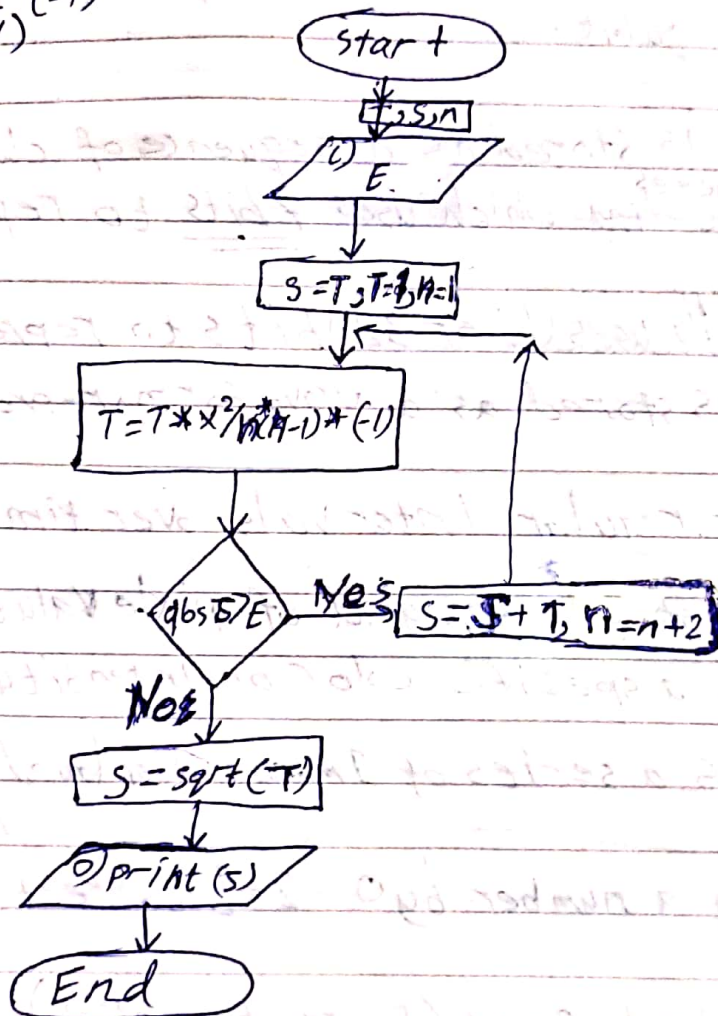 start
T,s,n
(i)
E.
S=T, T=1, n=1
T=T*x²/n*(n-1)*(-1)
abs T>E
Yes
S=S+T, n=n+2
No
S=sqrt(T)
o) print(s)
End